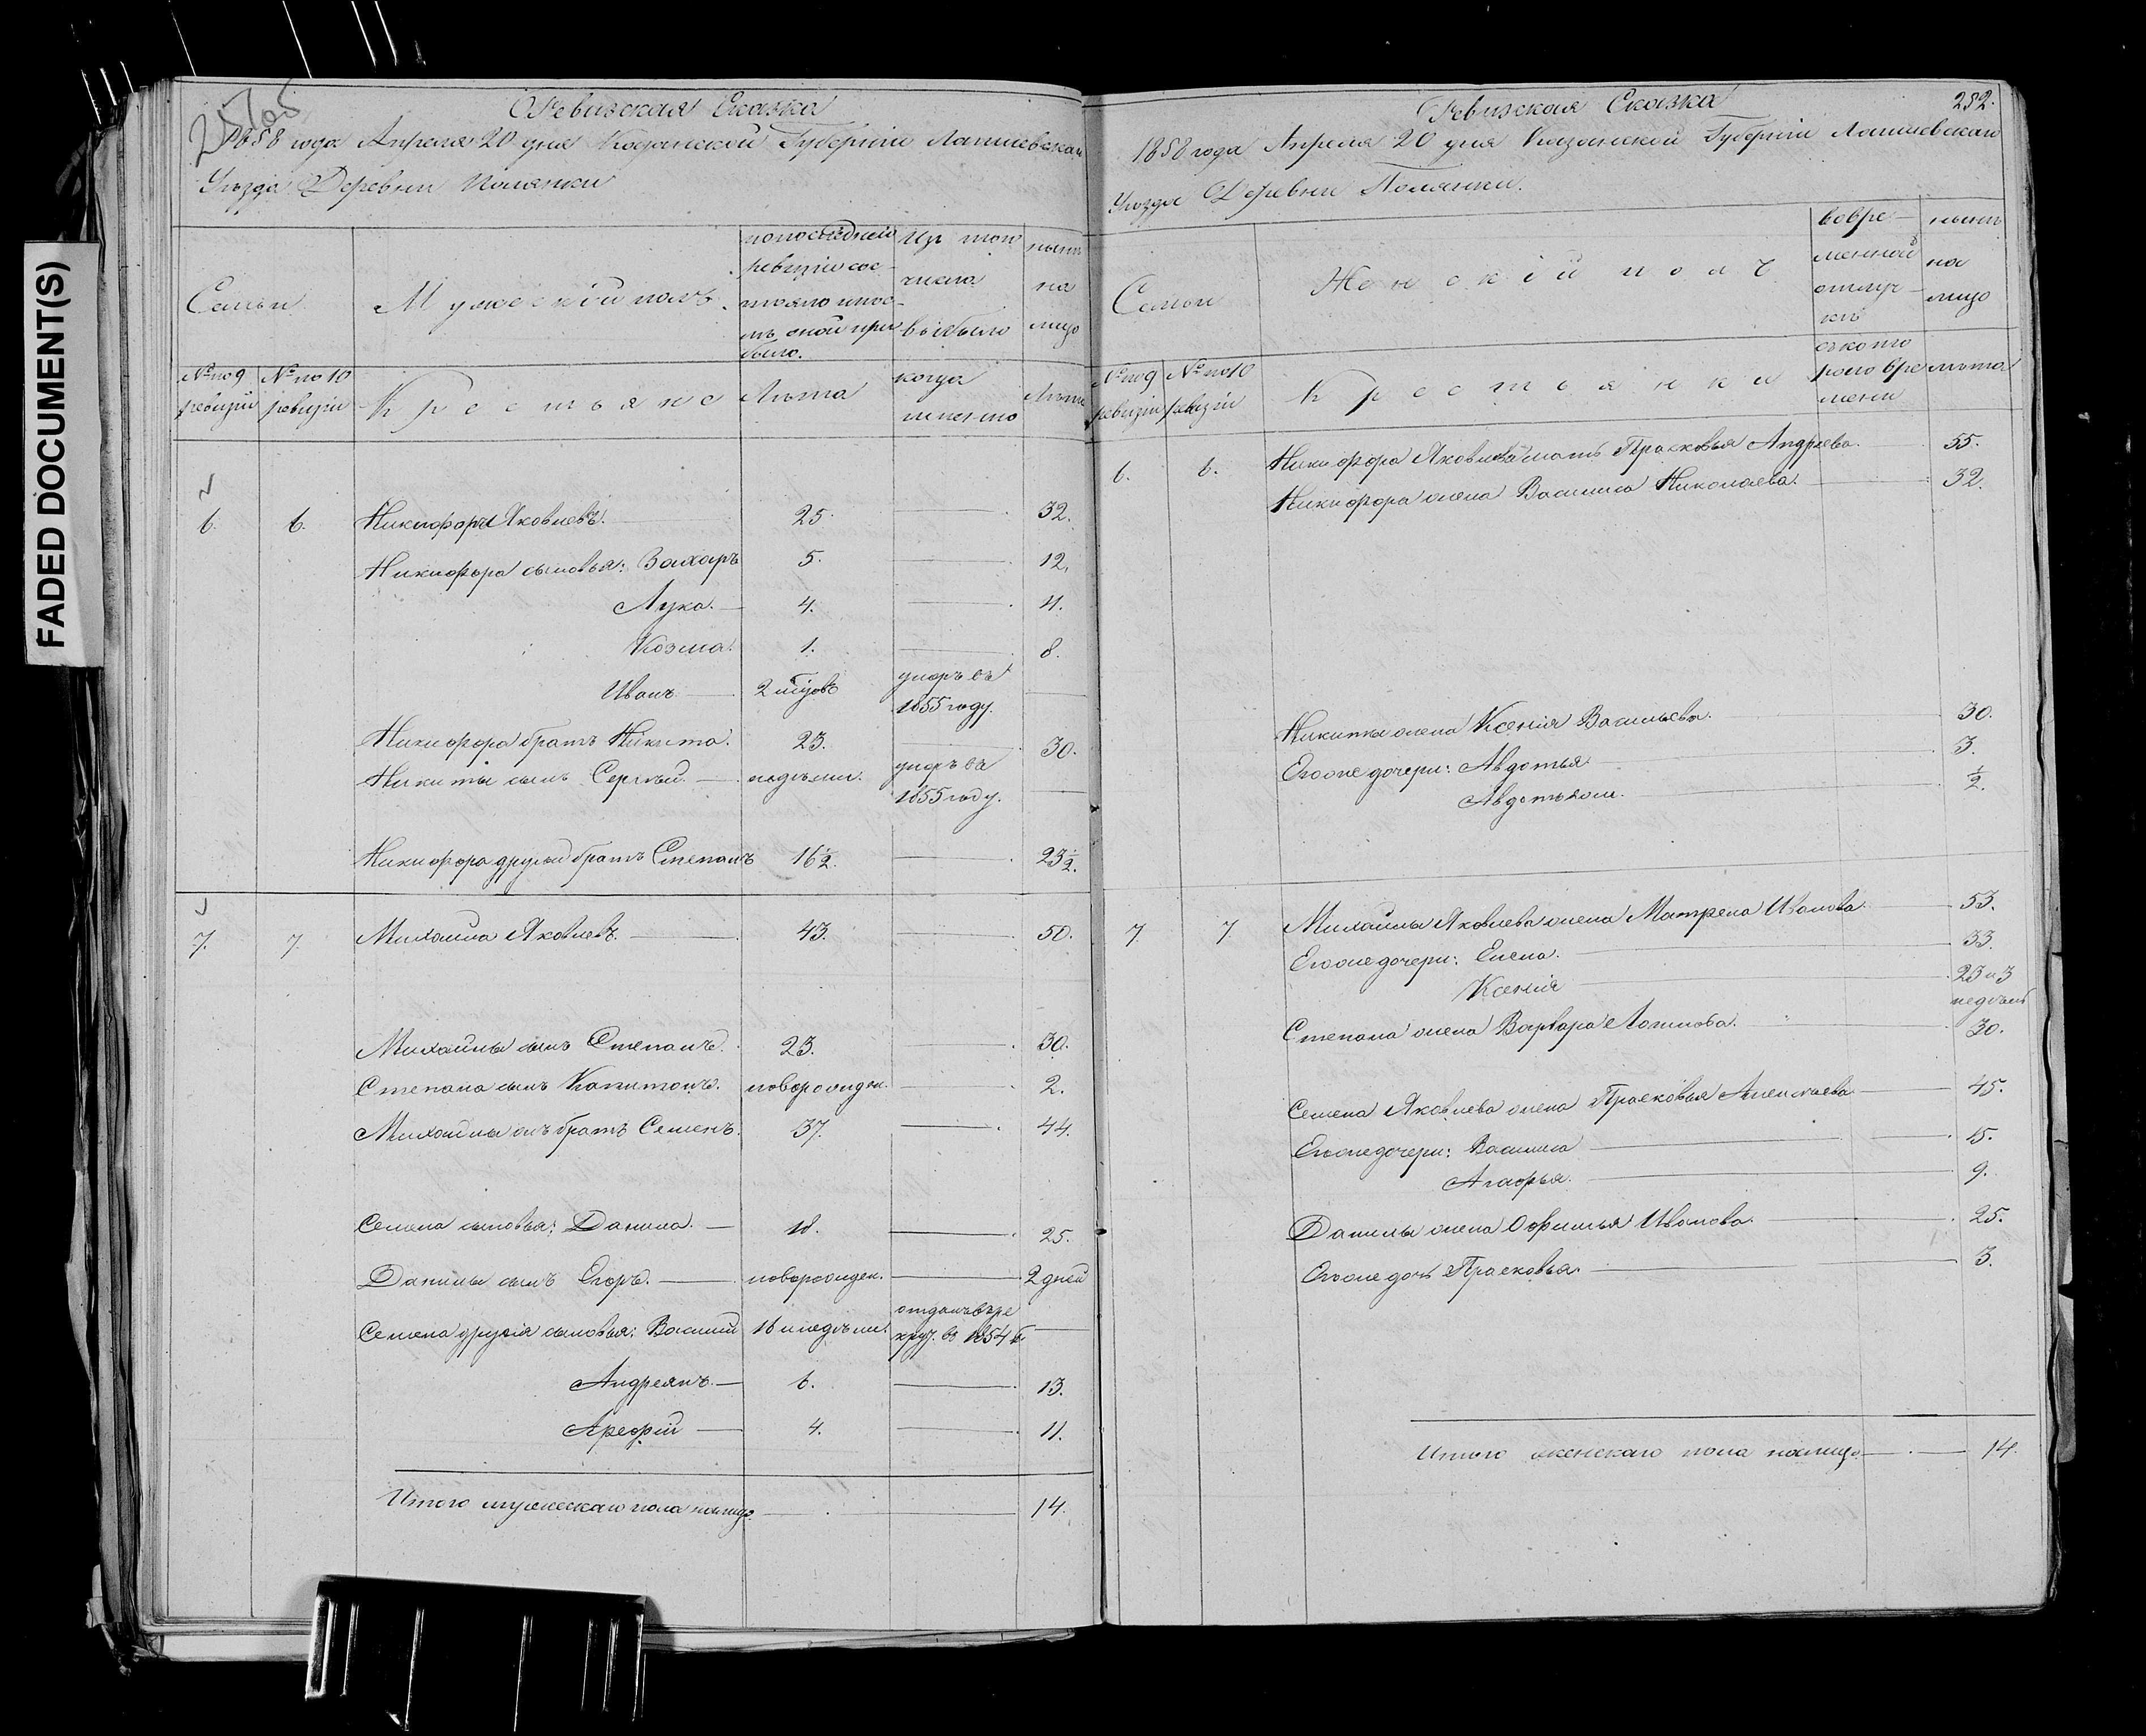 FADED DOCUMENT(S)
Ревизская Сказка
1858 года Апреля 20 дня Казанской Губерніи Лаишевскаго
Уѣзда Деревни Полянки
Семьи
Мужескій полъ
по последней ревизіи состояло и после оной прибыло.
Изъ того числа выбыло
нынѣ на лицо
№ по 9 ревизіи
№ по 10 ревизіи
Крестьяне
Лѣта
когда именно
Лѣта
6. 6. Никифоръ Яковлевъ. 25. 32.
Никифора сыновья: Захаръ 5. 12.
Лука. 4. 11.
Козма. 1. 8.
Иванъ 2 месяцовъ умеръ въ 1855 году.
Никифора братъ Никита. 23. 30.
Никиты сынъ Сергѣй. недѣли. умеръ въ 1855 году.
Никифора другой братъ Степанъ 16½. 23½.
7. 7. Михайла Яковлевъ. 43. 50.
Михайлы сынъ Степанъ. 23. 30.
Степана сынъ Капитонъ. новорожден. 2.
Михайлы братъ Семенъ. 37. 44.
Семена сыновья: Данила. 18. 25.
Данилы сынъ Егоръ. новорожден. 2 дней
Семена другія сыновья: Василій 16 и недѣли. отданъ въ рекруты въ 1854 г.
Андреянъ. 6. 13.
Арефій 4. 11.
Итого мужескаго пола налицо 14.
Ревизская Сказка
252.
1858 года Апреля 20 дня Казанской Губерніи Лаишевскаго
Уѣзда Деревни Полянки.
Семьи
Женскій полъ
во временной отлучкѣ
нынѣ на лицо
№ по 9 ревизіи
№ по 10 ревизіи
Крестьянки
съ котораго времени
лѣта
6. 6. Никифора Яковлева мать Прасковья Андреева. 55.
Никифора жена Василиса Николаева. 32.
Никиты жена Ксенія Васильева. 30.
Его же дочери: Авдотья 3.
Авдотья ½.
7. 7. Михайлы Яковлева жена Матрена Иванова. 53.
Его же дочери: Елена. 33.
Ксенія 23 и 3 недѣли
Степана жена Варвара Логинова. 30.
Семена Яковлева жена Прасковья Алексеева 45.
Его же дочери: Василиса 15.
Агафья. 9.
Данилы жена Офимья Иванова. 25.
Его же дочь Прасковья. 3.
Итого женскаго пола налицо 14.